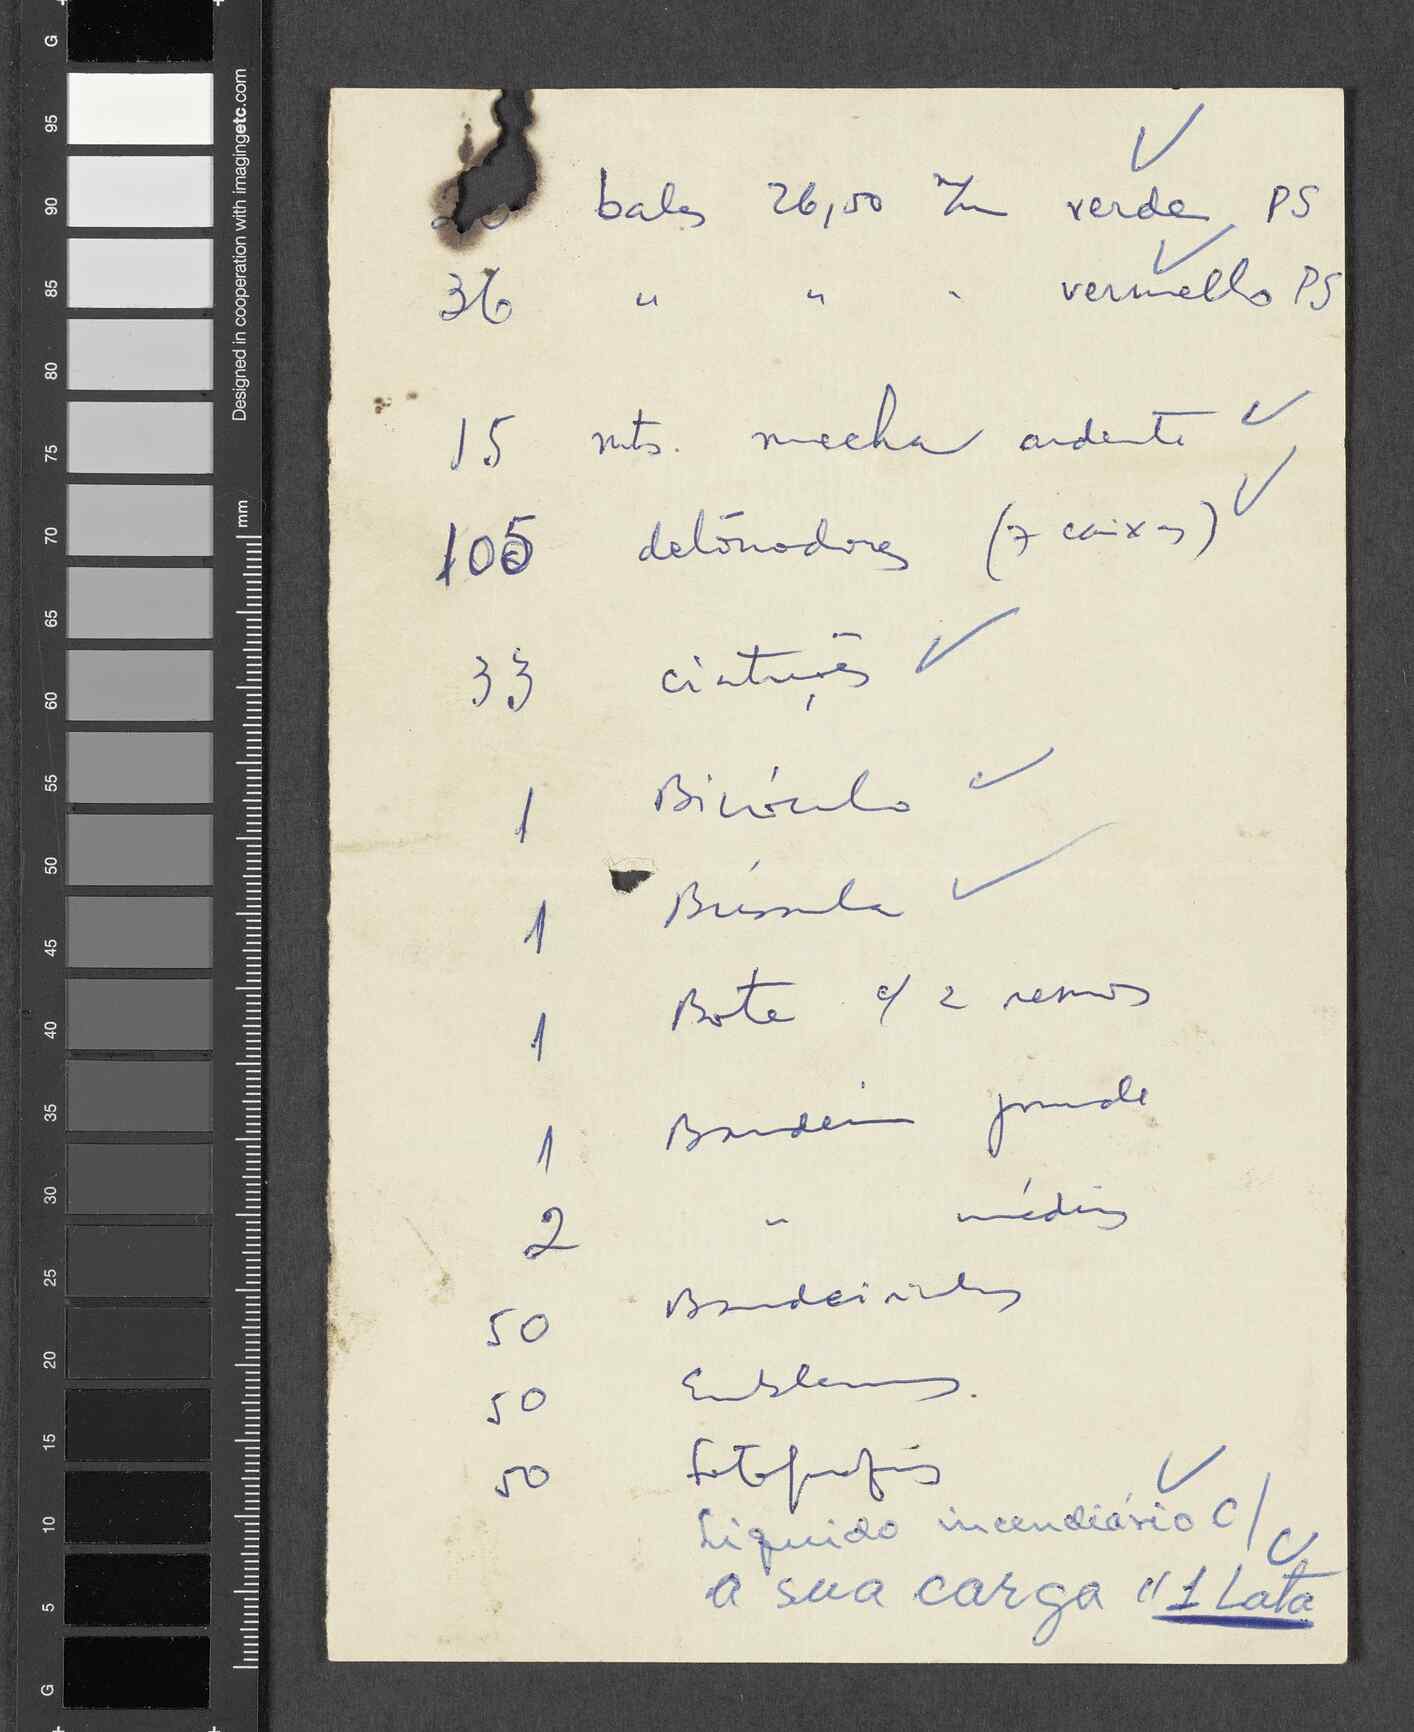 G
95
90
85
80
75
70
65
60
55
50
45
40
35
30
25
20
15
10
5
G
Designed in cooperation with imagingetc.com
mm
balas 26,50 m/m verde PS
36 " " " vermelho PS
15 mts. mecha ardente
105 detónadores (7 caixas)
33 cinturões
1 Binóculo
1 Bússula
1 Bote c/ 2 remos
1 Bandeira grande
2 " médias
50 Bandeirinhas
50 Emblemas.
50 Fotografias
Liquido incendiário C/
a sua carga "1 Lata